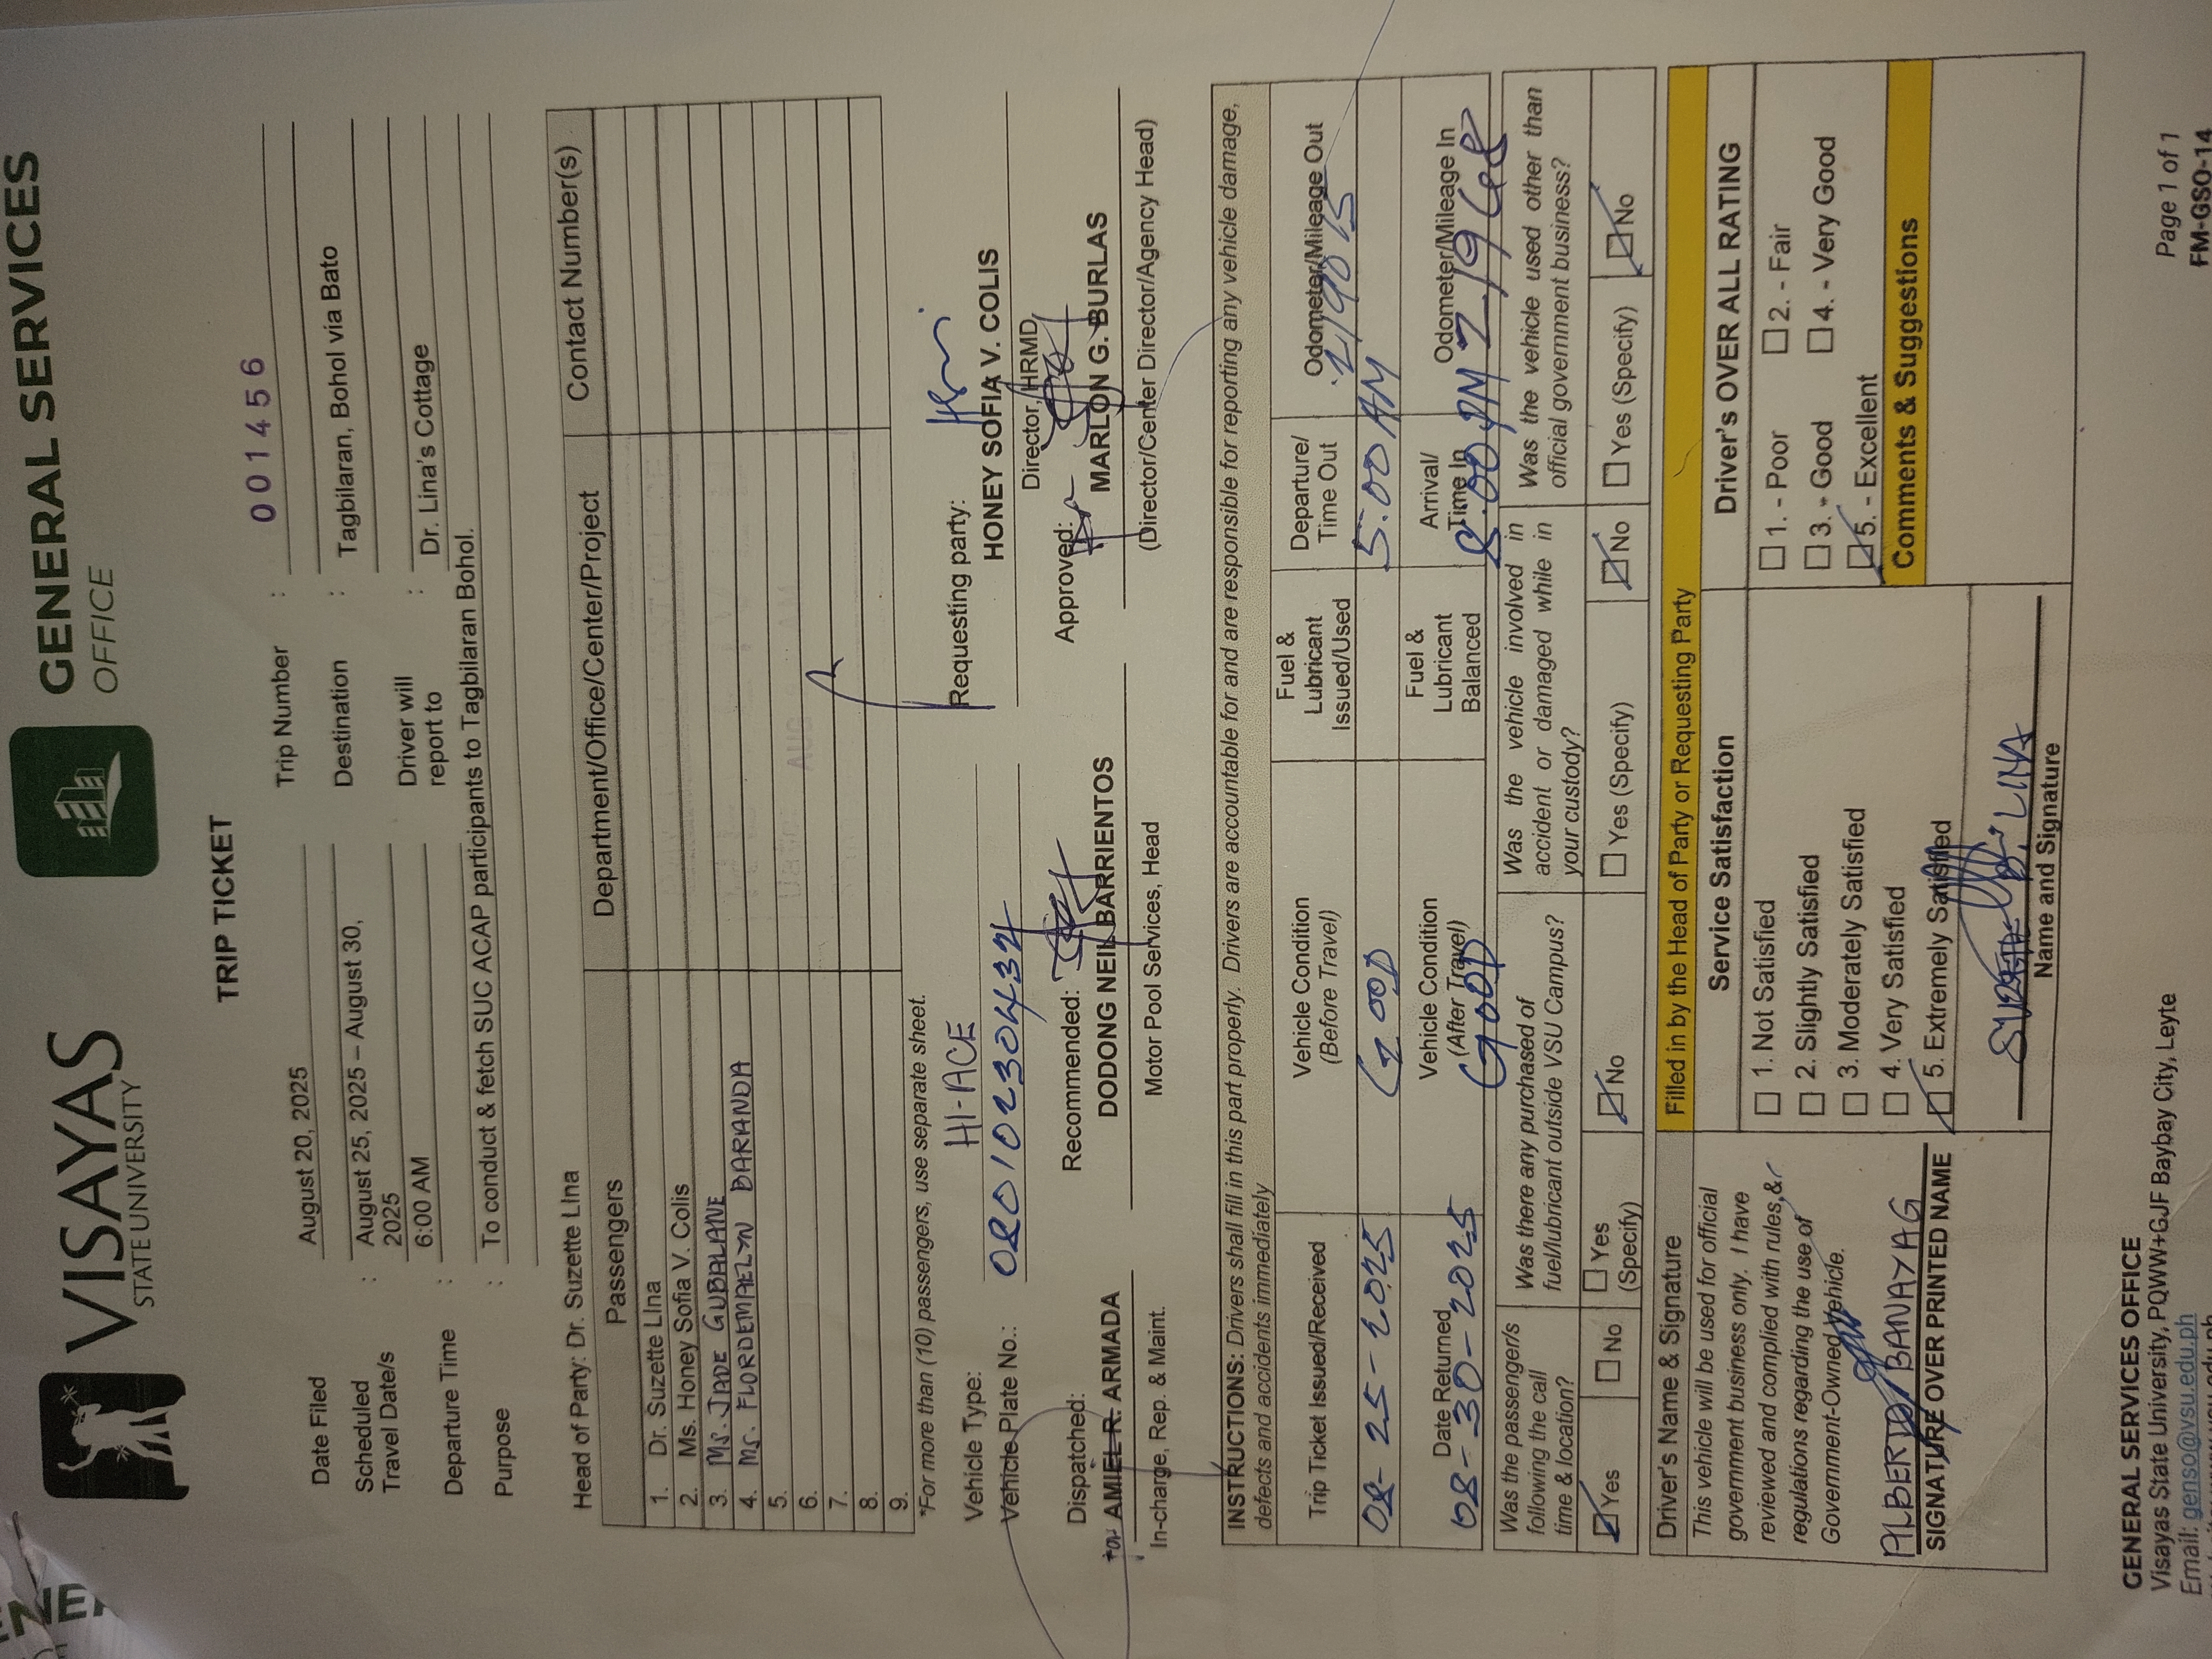 VISAYAS
STATE UNIVERSITY
GENERAL SERVICES
OFFICE
TRIP TICKET
Date Filed August 20, 2025
Trip Number : 001456
Scheduled Travel Date/s : August 25, 2025 – August 30, 2025
Destination : Tagbilaran, Bohol via Bato
Departure Time : 6:00 AM
Driver will report to : Dr. Lina's Cottage
Purpose : To conduct & fetch SUC ACAP participants to Tagbilaran Bohol.
Head of Party: Dr. Suzette LIna
Passengers Department/Office/Center/Project Contact Number(s)
1. Dr. Suzette LIna
2. Ms. Honey Sofia V. Colis
3. Ms. JADE GUBALANE
4. Ms. FLORDEMAELYN BARANDA
5.
6.
7.
8.
9.
*For more than (10) passengers, use separate sheet.
Vehicle Type: HI-ACE
Vehicle Plate No.: 0801023 0432
Requesting party:
HONEY SOFIA V. COLIS
Director, HRMD
Dispatched:
for AMIEL R. ARMADA
In-charge, Rep. & Maint.
Recommended:
DODONG NEIL BARRIENTOS
Motor Pool Services, Head
Approved:
MARLON G. BURLAS
(Director/Center Director/Agency Head)
INSTRUCTIONS: Drivers shall fill in this part properly. Drivers are accountable for and are responsible for reporting any vehicle damage,
defects and accidents immediately
Trip Ticket Issued/Received
08-25-2025
Vehicle Condition
(Before Travel)
GOOD
Fuel &
Lubricant
Issued/Used
Departure/
Time Out
5:00 AM
Odometer/Mileage Out
Date Returned
08-30-2025
Vehicle Condition
(After Travel)
GOOD
Fuel &
Lubricant
Balanced
Arrival/
Time In
8:00 PM
Odometer/Mileage In
Was the passenger/s
following the call
time & location?
Yes No
Was there any purchased of
fuel/lubricant outside VSU Campus?
Yes
(Specify)
No
Was the vehicle involved in
accident or damaged while in
your custody?
Yes (Specify) No
Was the vehicle used other than
official government business?
Yes (Specify) No
Driver's Name & Signature
This vehicle will be used for official
government business only. I have
reviewed and complied with rules &
regulations regarding the use of
Government-Owned Vehicle.
ALBERTO BANAYAG
SIGNATURE OVER PRINTED NAME
Filled in by the Head of Party or Requesting Party
Service Satisfaction
1. Not Satisfied
2. Slightly Satisfied
3. Moderately Satisfied
4. Very Satisfied
5. Extremely Satisfied
SUZETTE B. LINA
Name and Signature
Driver's OVER ALL RATING
1. - Poor 2. - Fair
3. - Good 4. - Very Good
5. - Excellent
Comments & Suggestions
GENERAL SERVICES OFFICE
Visayas State University, PQWW+GJF Baybay City, Leyte
Email: genso@vsu.edu.ph
Page 1 of 1
FM-GSO-14